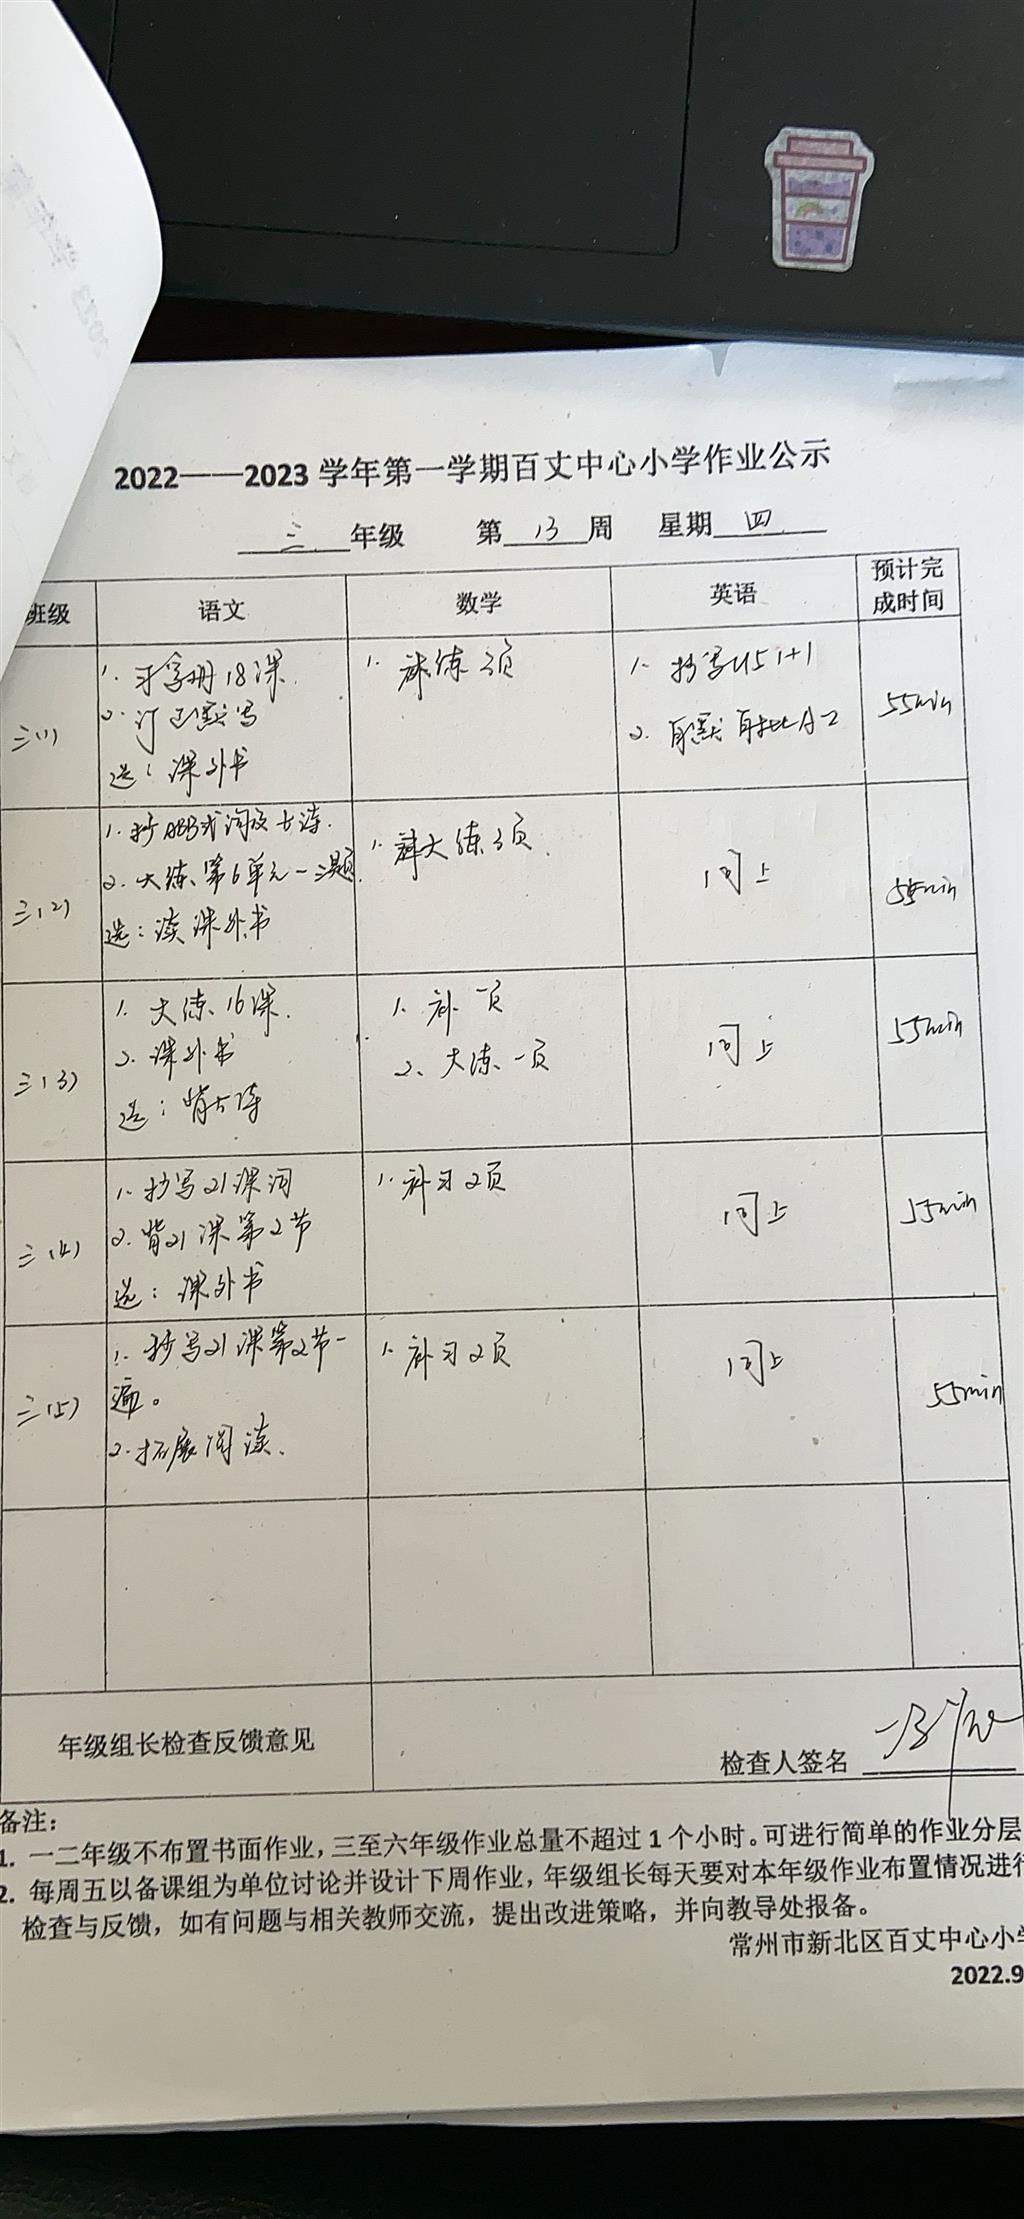 2022——2023 学年第一学期百丈中心小学作业公示
三 年级 第 13 周 星期 四
班级 语文 数学 英语 预计完成时间
三(1)
1. 习字册18课.
2. 订正默写
选：课外书
1. 补练2页
1. 抄写U5 1+1
2. 自默自批A-2
55min
三(2)
1. 抄ABB式词及古诗.
2. 大练第6单元一二题.
选：读课外书
1. 大练3页.
同上
55min
三(3)
1. 大练16课.
2. 课外书
选：背古诗
1. 补一页
2. 大练一页
同上
55min
三(4)
1. 抄写21课词
2. 背21课第2节
选：课外书
1. 补习2页
同上
55min
三(5)
1. 抄写21课第2节一
遍。
2. 拓展阅读.
1. 补习2页
同上
55min
年级组长检查反馈意见
检查人签名
备注：
1. 一二年级不布置书面作业，三至六年级作业总量不超过1个小时。可进行简单的作业分层
2. 每周五以备课组为单位讨论并设计下周作业，年级组长每天要对本年级作业布置情况进行
检查与反馈，如有问题与相关教师交流，提出改进策略，并向教导处报备。
常州市新北区百丈中心小学
2022.9